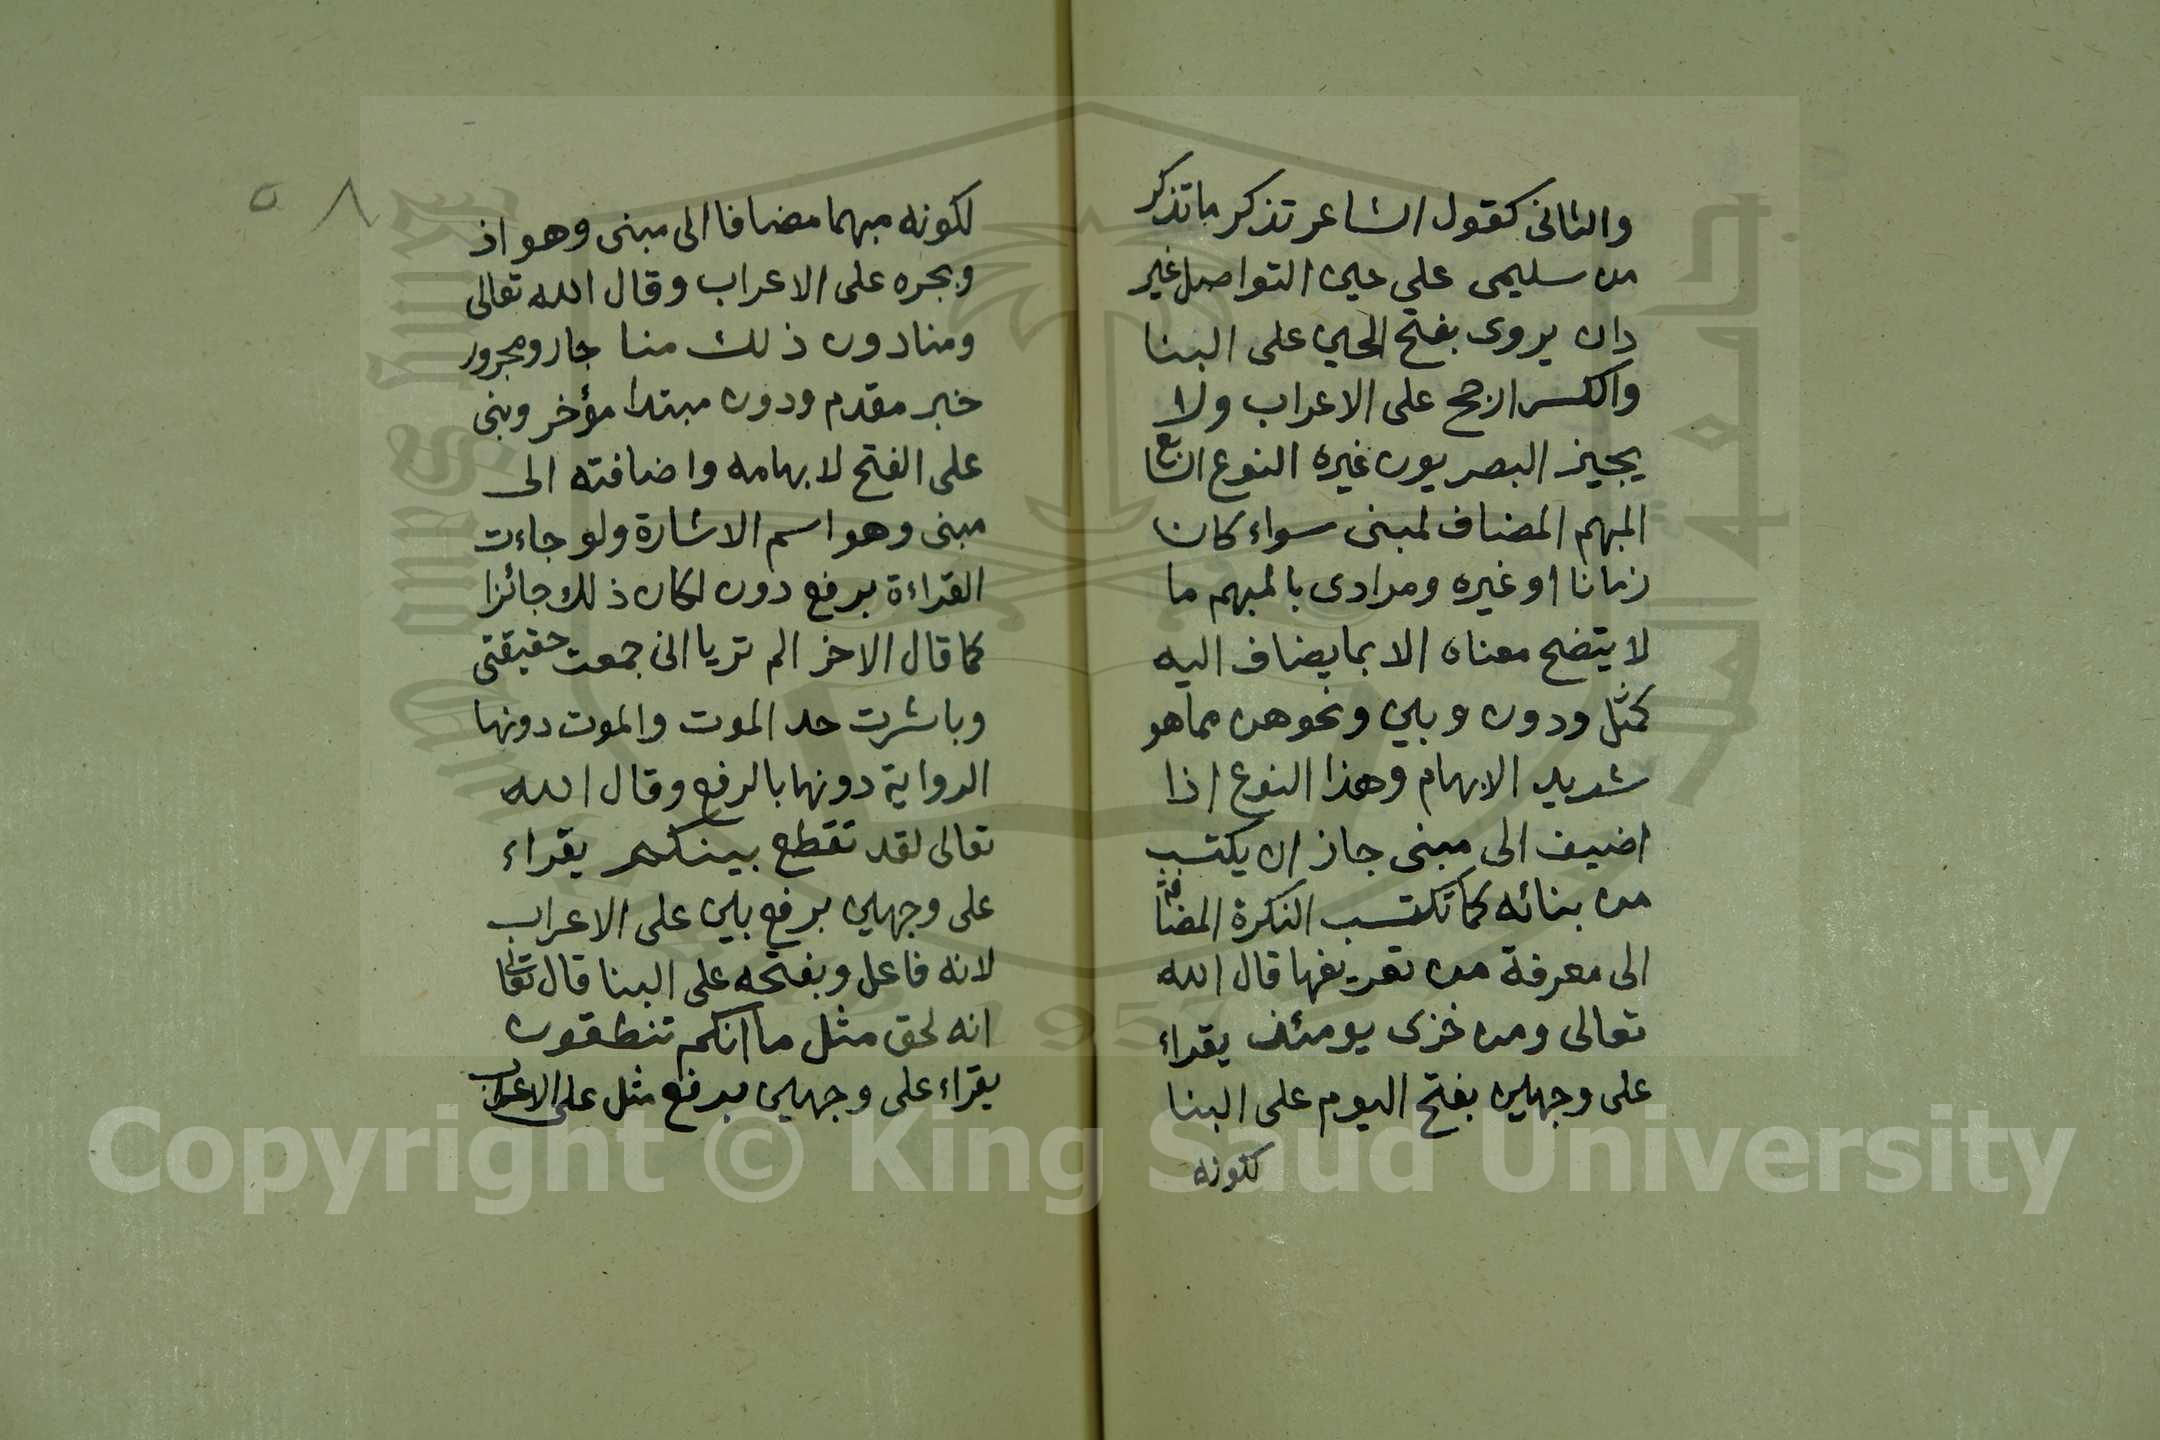 والثانى كقول الشاعر تذكر ما تذكر
من سليمى على حين التواصل غير
دان يروى بفتح الحين على البنا
والكسر ارجح على الاعراب ولا
يجيز البصريون غيره النوع الرابع
المبهم المضاف لمبنى سواء كان
زمانا او غيره ومرادى بالمبهم ما
لا يتضح معناه الا بما يضاف اليه
كمثل ودون وبين ونحوهن مما هو
شديد الابهام وهذا النوع اذا
اضيف الى مبنى جاز ان يكتسب
من بنائه كما تكتسب النكرة المضافة
الى معرفة من تعريفها قال الله
تعالى ومن خزى يومئذ يقراء
على وجهين بفتح اليوم على البنا
لكونه
٥٨
لكونه مبهما مضافا الى مبنى وهو اذ
وبجره على الاعراب وقال الله تعالى
ومنا دون ذلك منا جار ومجرور
خبر مقدم ودون مبتدا مؤخر وبنى
على الفتح لابهامه واضافته الى
مبنى وهو اسم الاشارة ولو جاءت
القراءة برفع دون لكان ذلك جائزا
كما قال الاخر الم تريا انى جمعت حقيقتى
وباشرت حد الموت والموت دونها
الرواية دونها بالرفع وقال الله
تعالى لقد تقطع بينكم يقراء
على وجهين برفع بين على الاعراب
لانه فاعل وبفتحه على البنا قال تعالى
انه لحق مثل ما انكم تنطقون
يقراء على وجهين برفع مثل على الاعراب
Copyright © King Saud University
1957